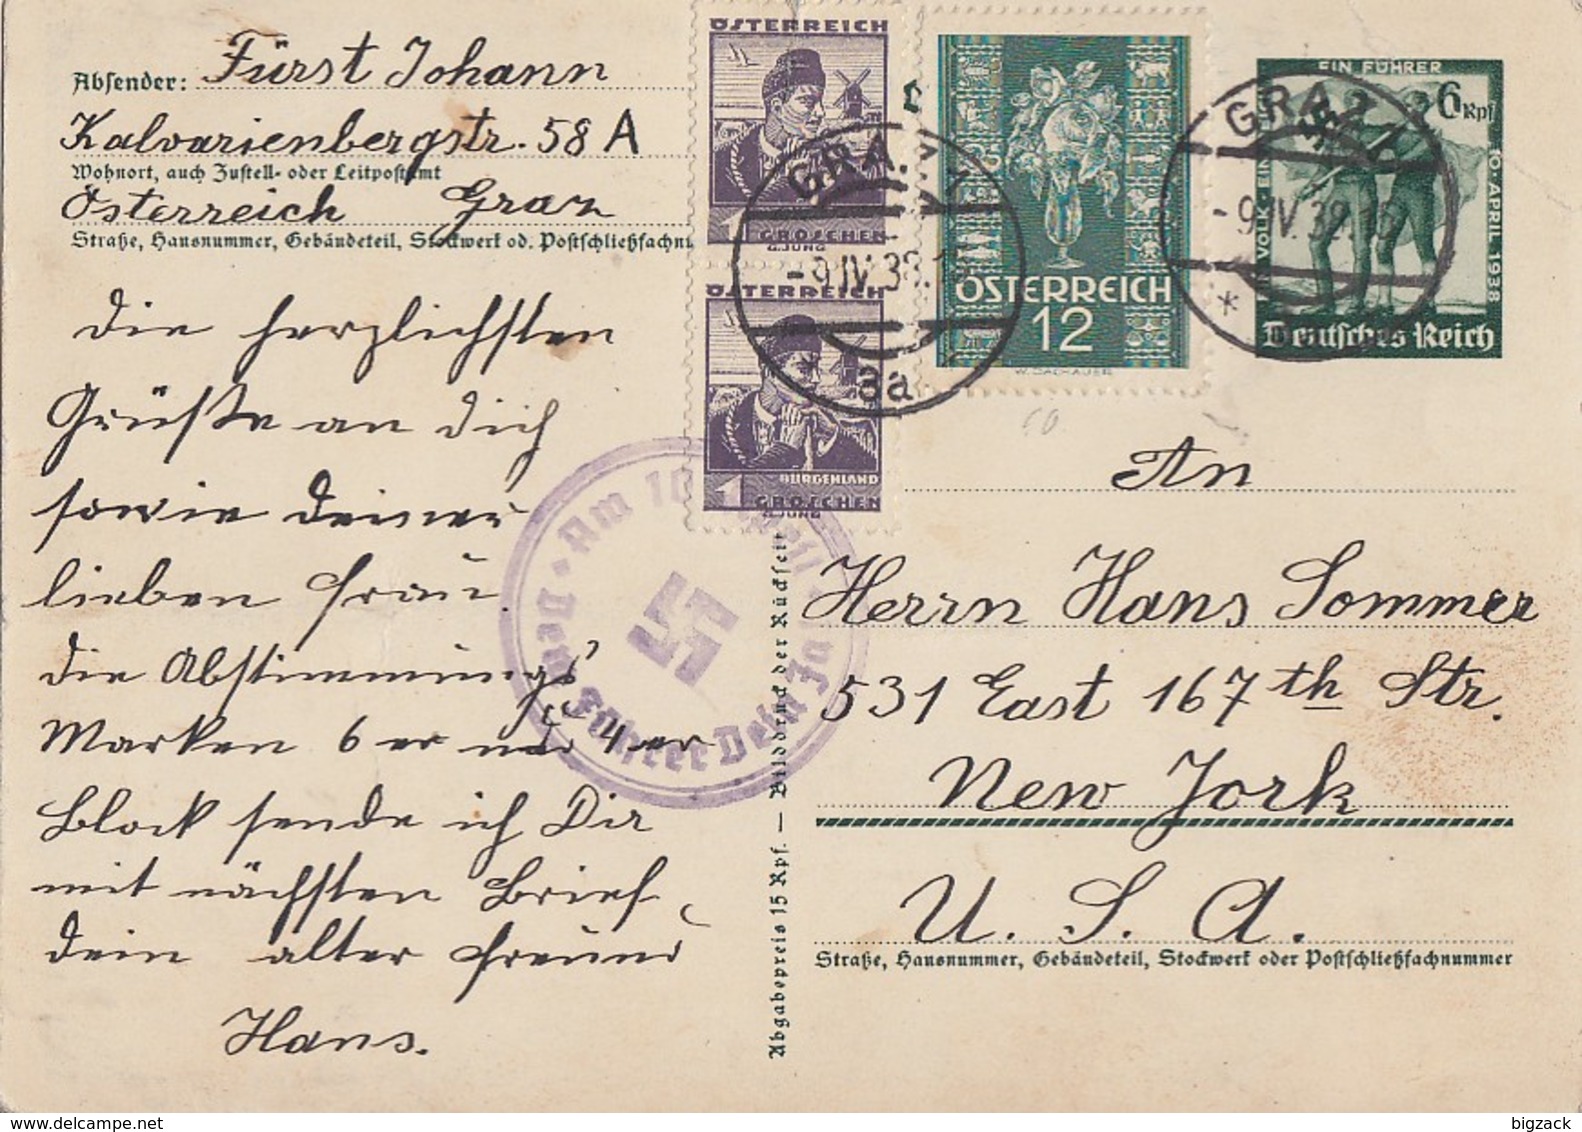 Absender: Fürst Johann
Kalvarienbergstr. 58 A
Wohnort, auch Zustell- oder Leitpostamt
Österreich Graz
Straße, Hausnummer, Gebäudeteil, Stockwerk od. Postschließfachnu
die herzlichsten
Grüße an dich
sowie deiner
lieben Frau.
die Abstimmungs'
Marken 6er und 4er
Block sende ich Dir
mit nächsten Brief,
dein alter Freund
Hans.
ÖSTERREICH
1 GROSCHEN
G.JUNG
ÖSTERREICH
BURGENLAND
1 GROSCHEN
G.JUNG
ÖSTERREICH
12
EIN FÜHRER
6 Rpf
EIN VOLK EIN
10. APRIL 1938
Deutsches Reich
GRAZ 1
-9.IV.38.
3a
GRAZ 1
-9.IV.38.
*
Am 10. April
Dem Führer Dein Ja
Abgabepreis 15 Rpf. — Bilddruck der Rückseit
An
Herrn Hans Sommer
531 East 167th Str.
New York
U. S. A.
Straße, Hausnummer, Gebäudeteil, Stockwerk oder Postschließfachnummer
delcampe.net
bigzack